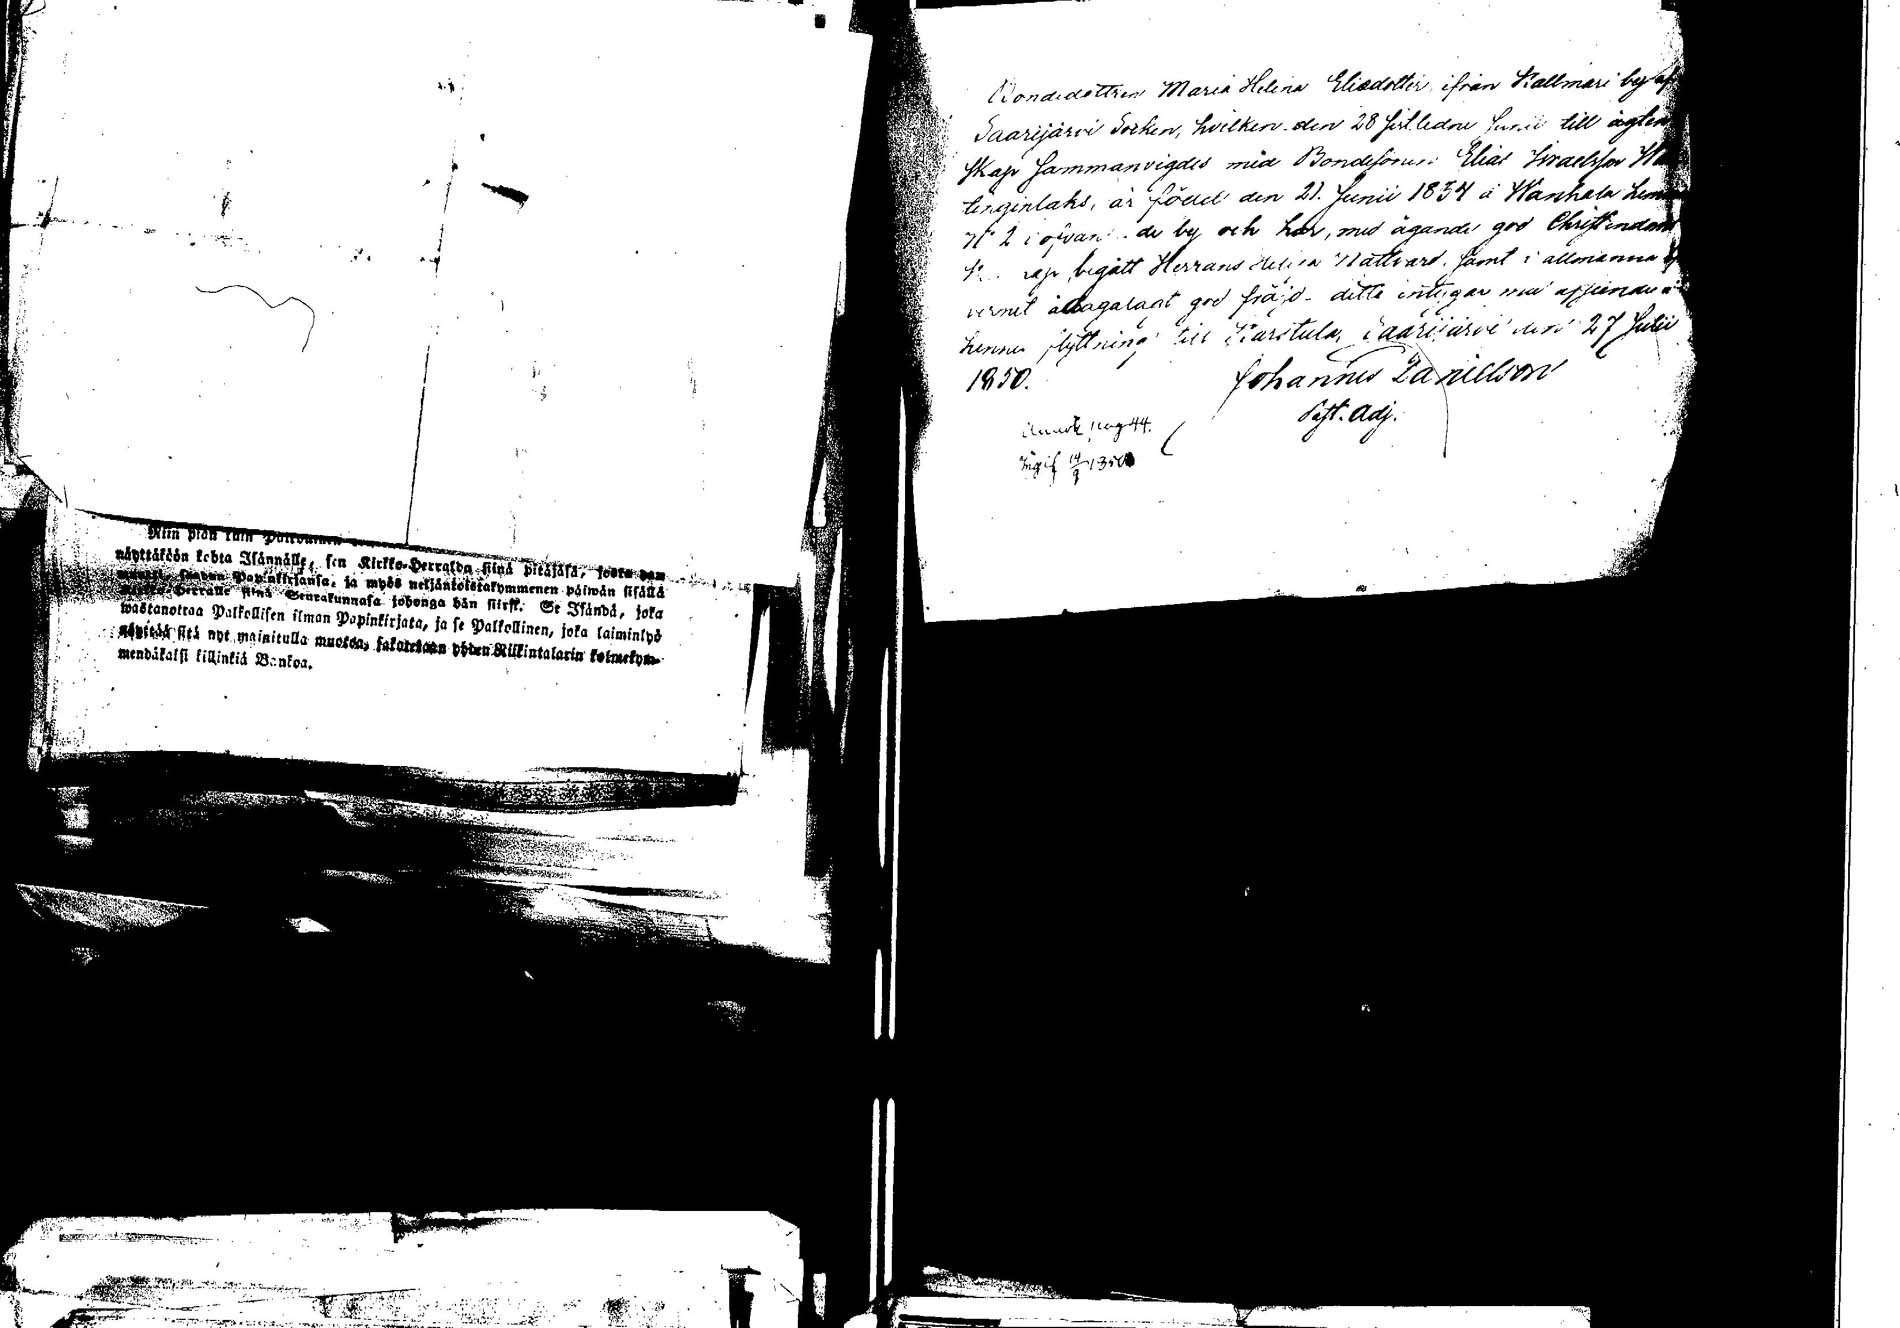 Niin pian kuin
näyttäköön kohta Isännälle, sen Kirkko-Herralda siinä pitäjäsä, josta han
Papinkirjansa, ja myös neljäntoistakymmenen päiwän sisällä
Herralle siinä Seurakunnasa johonga hän siirsk. Se Isändä, joka
wastanottaa Palkollisen ilman Papinkirjata, ja se Palkollinen, joka laiminlyö
näyttää sitä nyt mainitulla muotoa, sakotetaan yhden Riikintalarin kolmekym-
mendäkaksi killinkiä Bankoa.
Bondedottren Maria Helena Eliedotter, ifrån Kallmari by af
Saarijärvi Socken, hvilken den 28 sistledne Junii till ägten
skap sammanvigdes med Bondesonen Elias Israelsson
är född den 21. Junii 1834 å Wanhala hem
N° 2 i ofvan de by och har, med ägande god Christendoms
begått Herrans Heliga Nattvard, samt i allmänna
vernet ådagalagt god fräjd. detta intygar med afseende å
hennes flyttning till Karstula, Saarijärvi den 27 Julii
1850.
Johannes Danielson
Past. Adj.
pag 44.
Ingif 14/9 1850